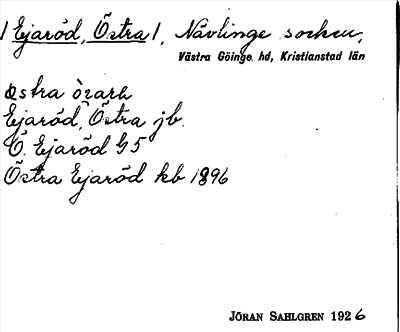 / Ejaröd, Östra /, Nävlinge socken,
Västra Göinge hd, Kristianstad län
Ejaröd, Östra jb.
Ö. Ejaröd G5
Östra Ejaröd kb 1896
JÖRAN SAHLGREN 1926